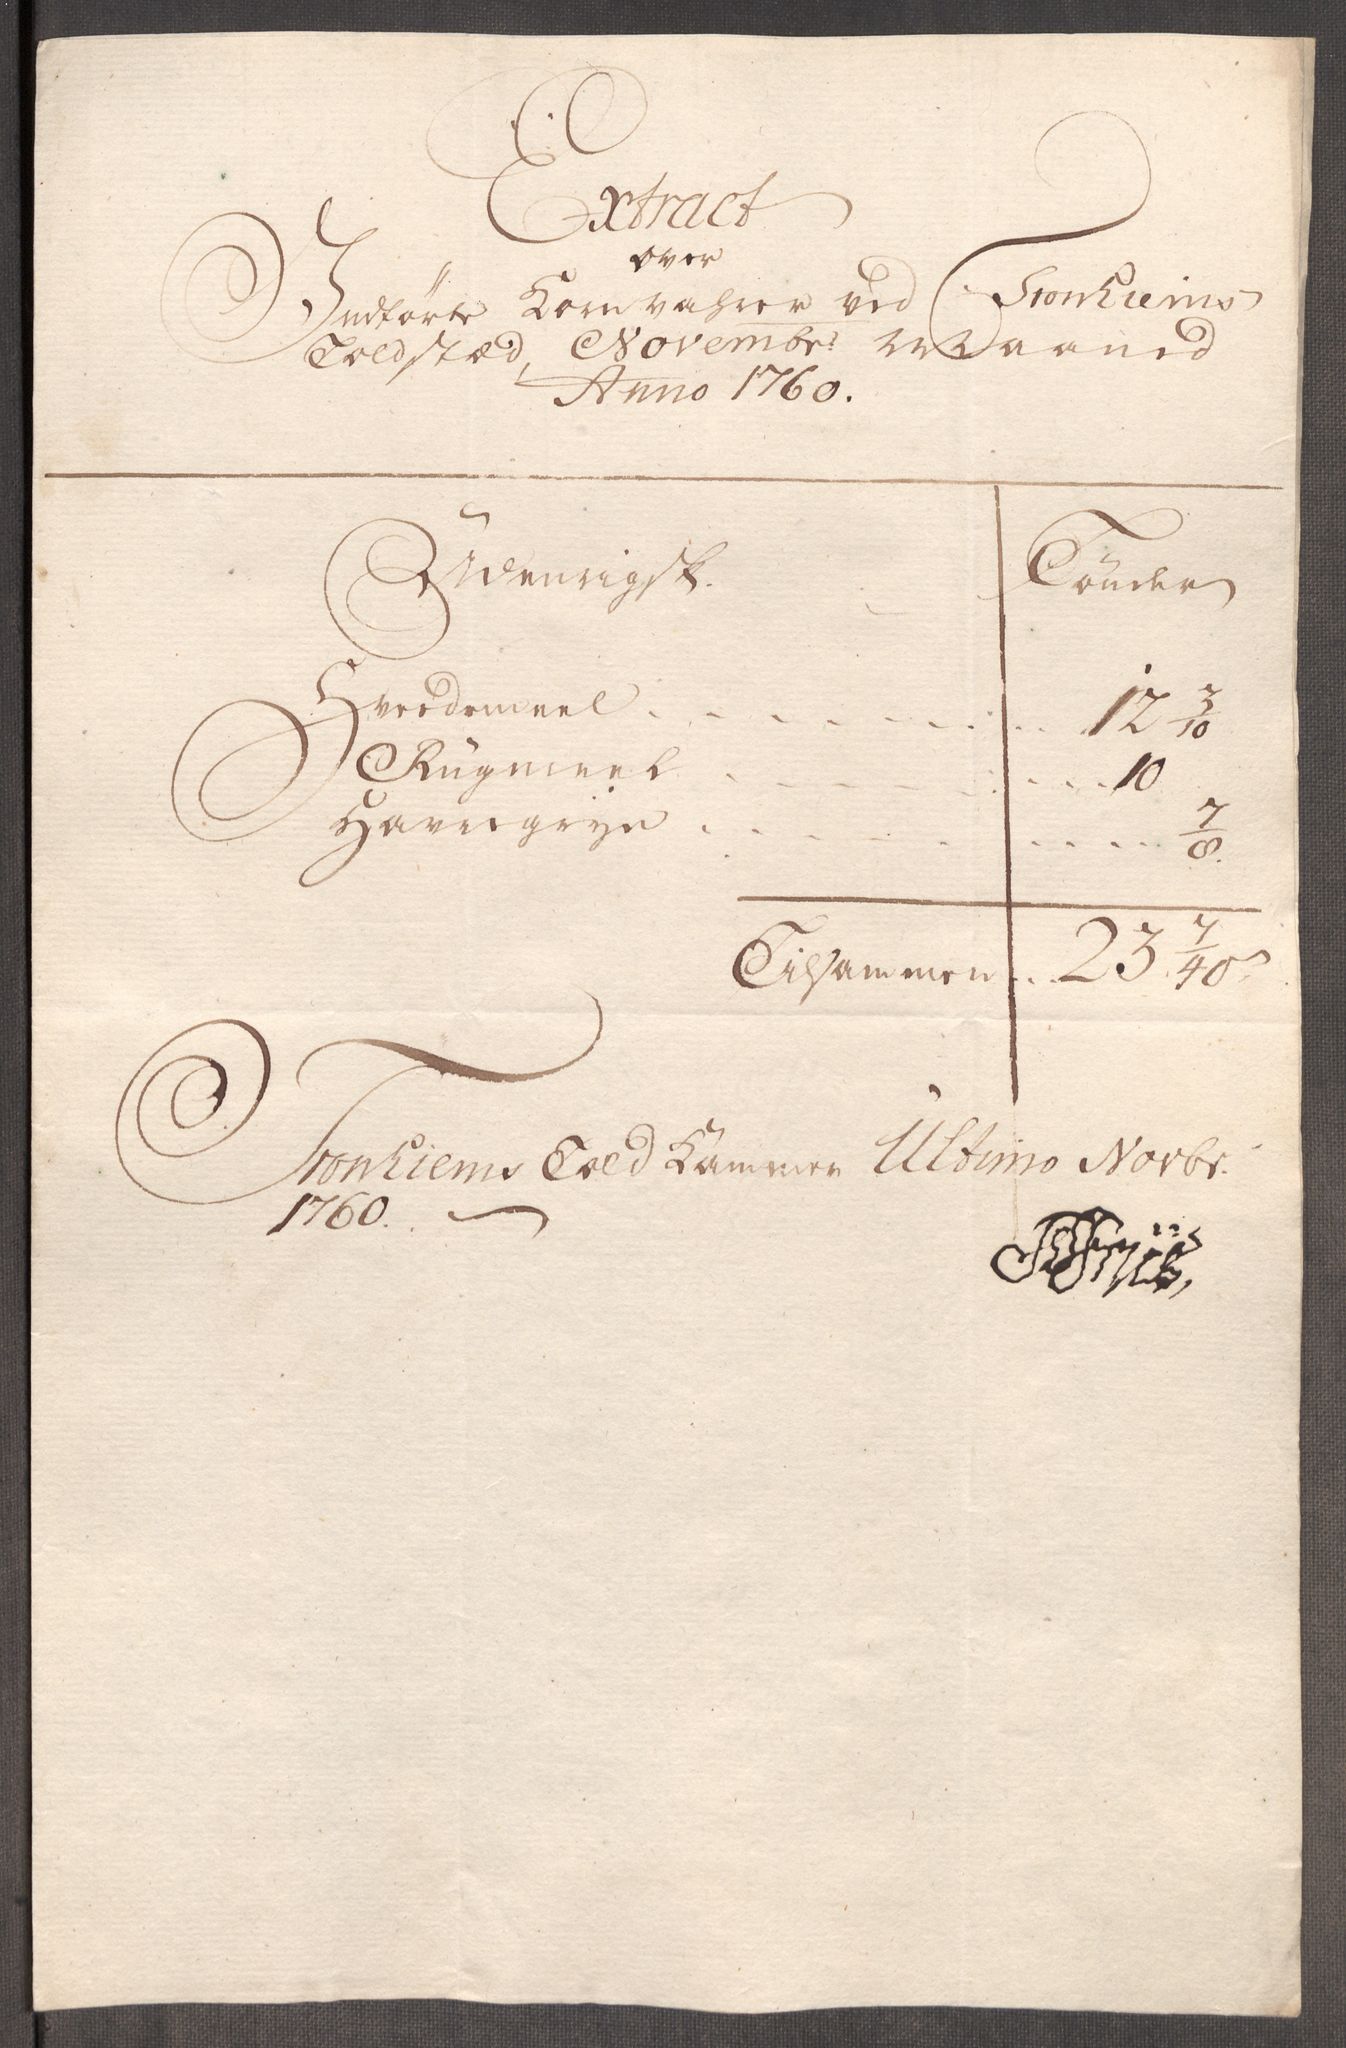 Extract
over
Indførte Kornvahrer ved Tronhiems
Toldstæd, Novembr: Maaned
Anno 1760.
Udenrigsk. Tønder
Hvedemeel . . . . . . . . . 12 3/10
Rugmeel . . . . . . . . . 10
Havregryn . . . . . . . . . 7/8.
Tilsammen . . 23 7/40
Tronhiems Told Kammer Ultimo Novbr.
1760.